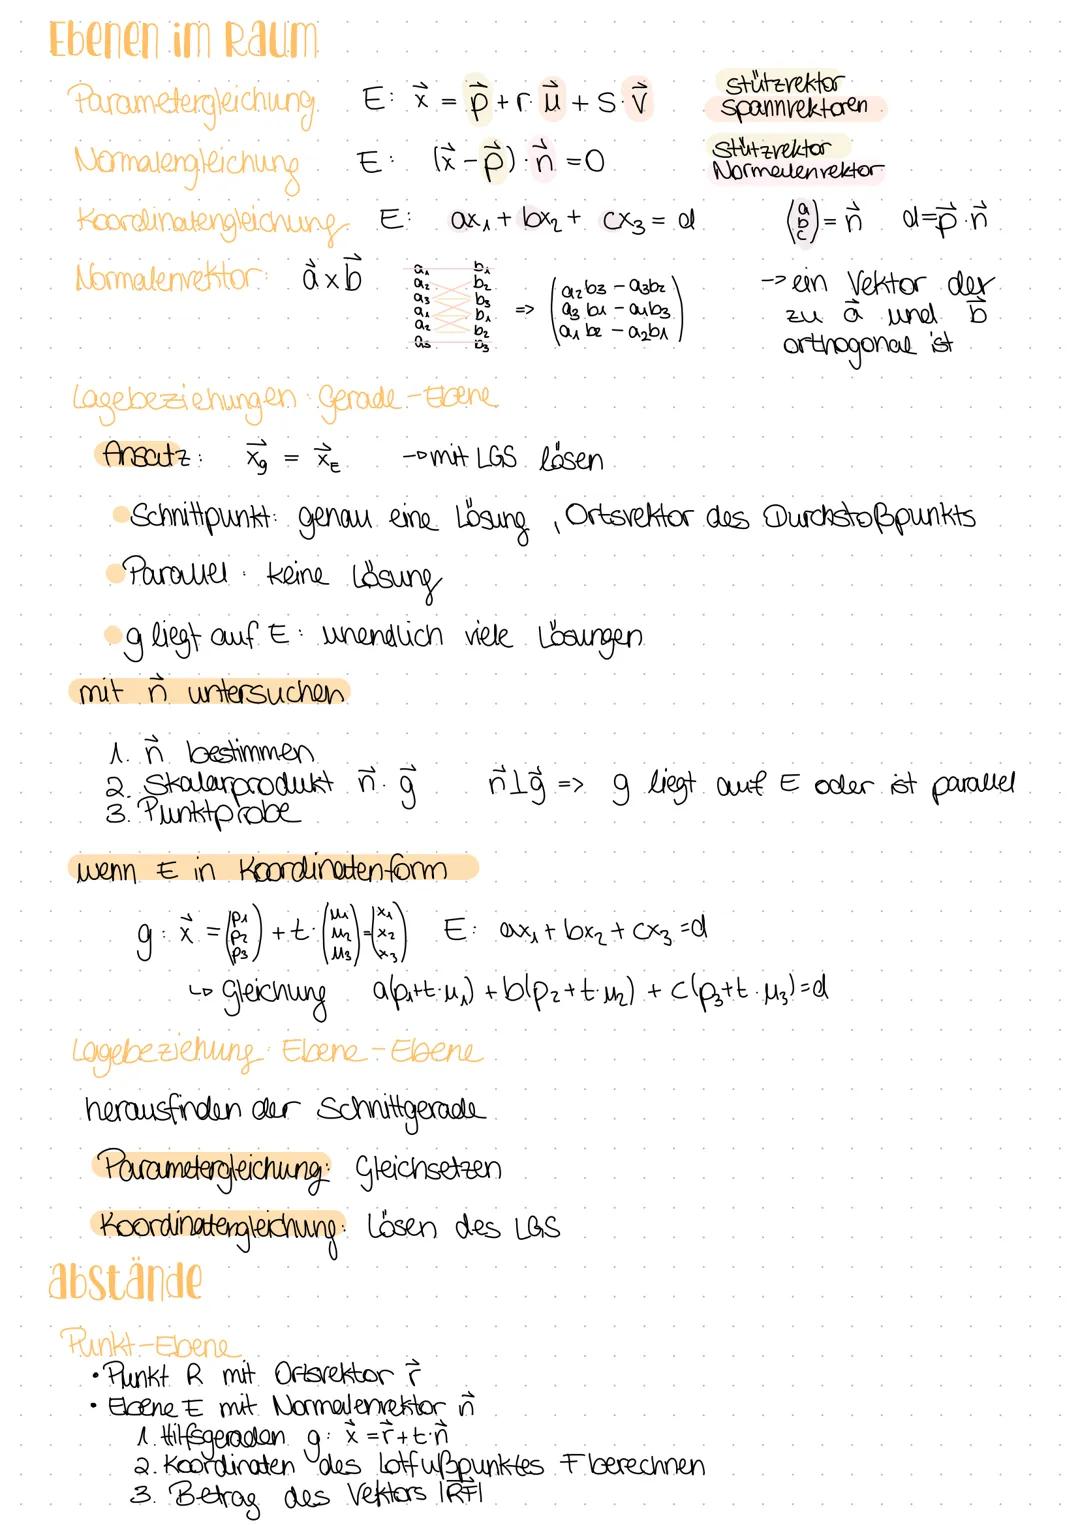 Ebenen im Raum
Parametergleichung E: x⃗ = p⃗ + r · u⃗ + s · v⃗ Stützvektor
Spannvektoren
Normalengleichung E: (x⃗ - p⃗) · n⃗ = 0 Stützvektor
Normalenvektor
Koordinatengleichung E: ax₁ + bx₂ + cx₃ = d (a b c) = n⃗ d = p⃗ · n⃗
Normalenvektor: a⃗ x b⃗
a₁ b₁
a₂ b₂
a₃ b₃
a₁ b₁
a₂ b₂
a₃ b₃
=> (a₂b₃ - a₃b₂
a₃b₁ - a₁b₃
a₁b₂ - a₂b₁)
-> ein Vektor der
zu a⃗ und b⃗
orthogonal ist
Lagebeziehungen Gerade - Ebene
Ansatz: x⃗g = x⃗E -> mit LGS lösen
Schnittpunkt: genau eine Lösung, Ortsvektor des Durchstoßpunkts
Parallel: keine Lösung
g liegt auf E: unendlich viele Lösungen
mit n⃗ untersuchen
1. n⃗ bestimmen
2. Skalarprodukt n⃗ · g⃗ n⃗ ⊥ g⃗ => g liegt auf E oder ist parallel
3. Punktprobe
wenn E in Koordinatenform
g: x⃗ = (p₁ p₂ p₃) + t · (u₁ u₂ u₃) = (x₁ x₂ x₃) E: ax₁ + bx₂ + cx₃ = d
↳ Gleichung a(p₁+t·u₁) + b(p₂+t·u₂) + c(p₃+t·u₃) = d
Lagebeziehung Ebene - Ebene
herausfinden der Schnittgerade
Parametergleichung: Gleichsetzen
Koordinatengleichung: Lösen des LGS
abstände
Punkt-Ebene
• Punkt R mit Ortsvektor r⃗
• Ebene E mit Normalenvektor n⃗
1. Hilfsgeraden g: x⃗ = r⃗ + t · n⃗
2. Koordinaten des Lotfußpunktes F berechnen
3. Betrag des Vektors |RF⃗|